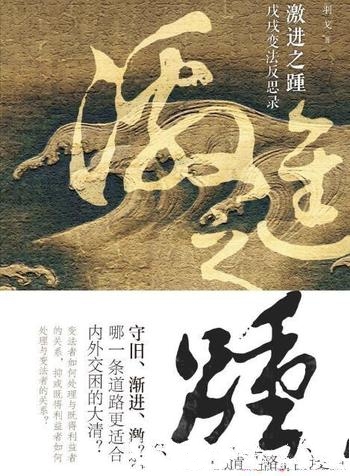 羽戈 著
激进之踵
戊戌变法反思录
激進之踵
守旧、渐进、
哪一条道路更适合
内外交困的大清？
变法者如何处理与既得利益者
的关系，抑或既得利益者如何
处理与变法者的关系？